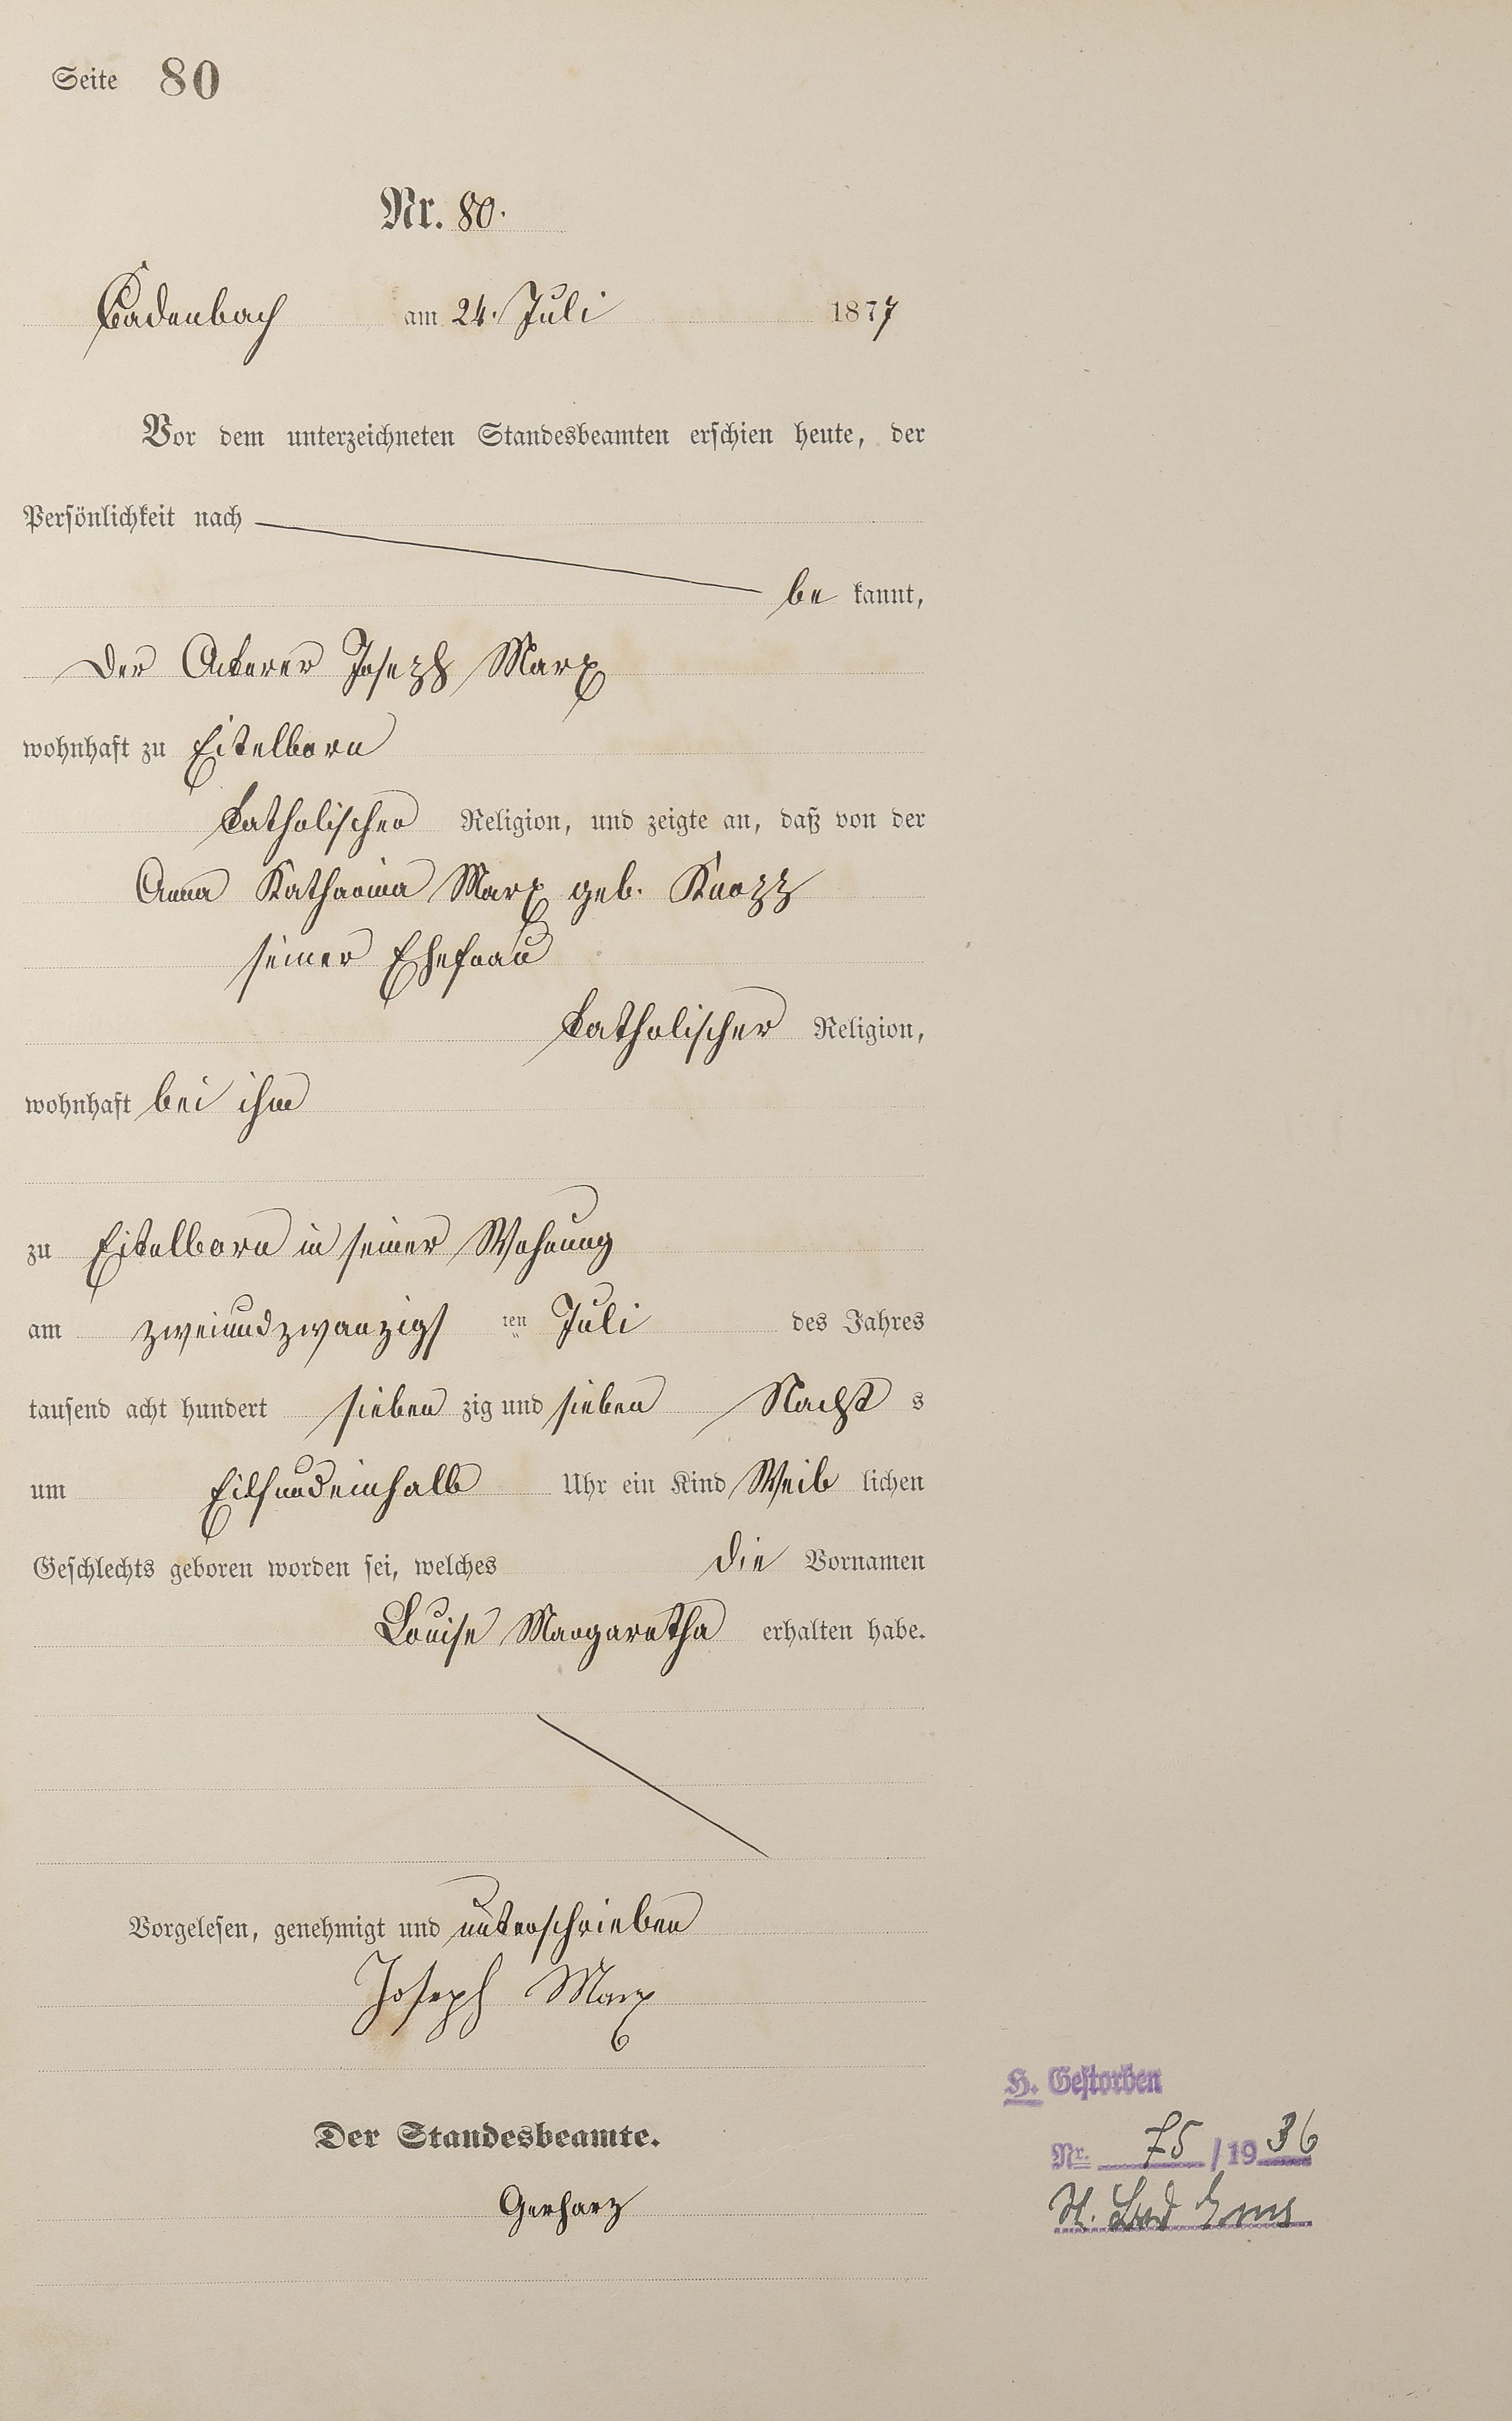 Seite 80
Nr. 80.
Cadenbach am 24. Juli 1877
Vor dem unterzeichneten Standesbeamten erschien heute, der
Persönlichkeit nach
be kannt,
der Ackerer Joseph Marx
wohnhaft zu Eitelborn
katholischer Religion, und zeigte an, daß von der
Anna Katharina Marx geb. Knopp
seiner Ehefrau
katholischer Religion,
wohnhaft bei ihm
zu Eitelborn in seiner Wohnung
am zweiundzwanzigs ten Juli des Jahres
tausend acht hundert sieben zig und sieben Nachts
um Eilfundeinhalb Uhr ein Kind Weib lichen
Geschlechts geboren worden sei, welches die Vornamen
Louise Margaretha erhalten habe.
Vorgelesen, genehmigt und unterschrieben
Joseph Marx
Der Standesbeamte.
Gerharz
H. Gestorben
Nr. 75 /1936
St. Bad Ems